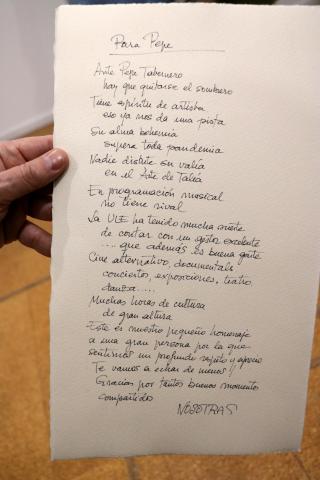 Para Pepe
Ante Pepe Tabernero
hay que quitarse el sombrero
Tiene espíritu de artista
eso ya nos da una pista
Su alma bohemia
supera toda pandemia
Nadie discute su valía
en el Arte de Talía
En programación musical
no tiene rival
La ULE ha tenido mucha suerte
de contar con un gestor excelente
.... que además es buena gente
Cine alternativo, documentales
conciertos, exposiciones, teatro
danza.....
Muchas horas de cultura
de gran altura
Este es nuestro pequeño homenaje
a una gran persona por la que
sentimos un profundo respeto y aprecio
Te vamos a echar de menos!!
Gracias por tantos buenos momentos
compartidos
NOSOTRAS